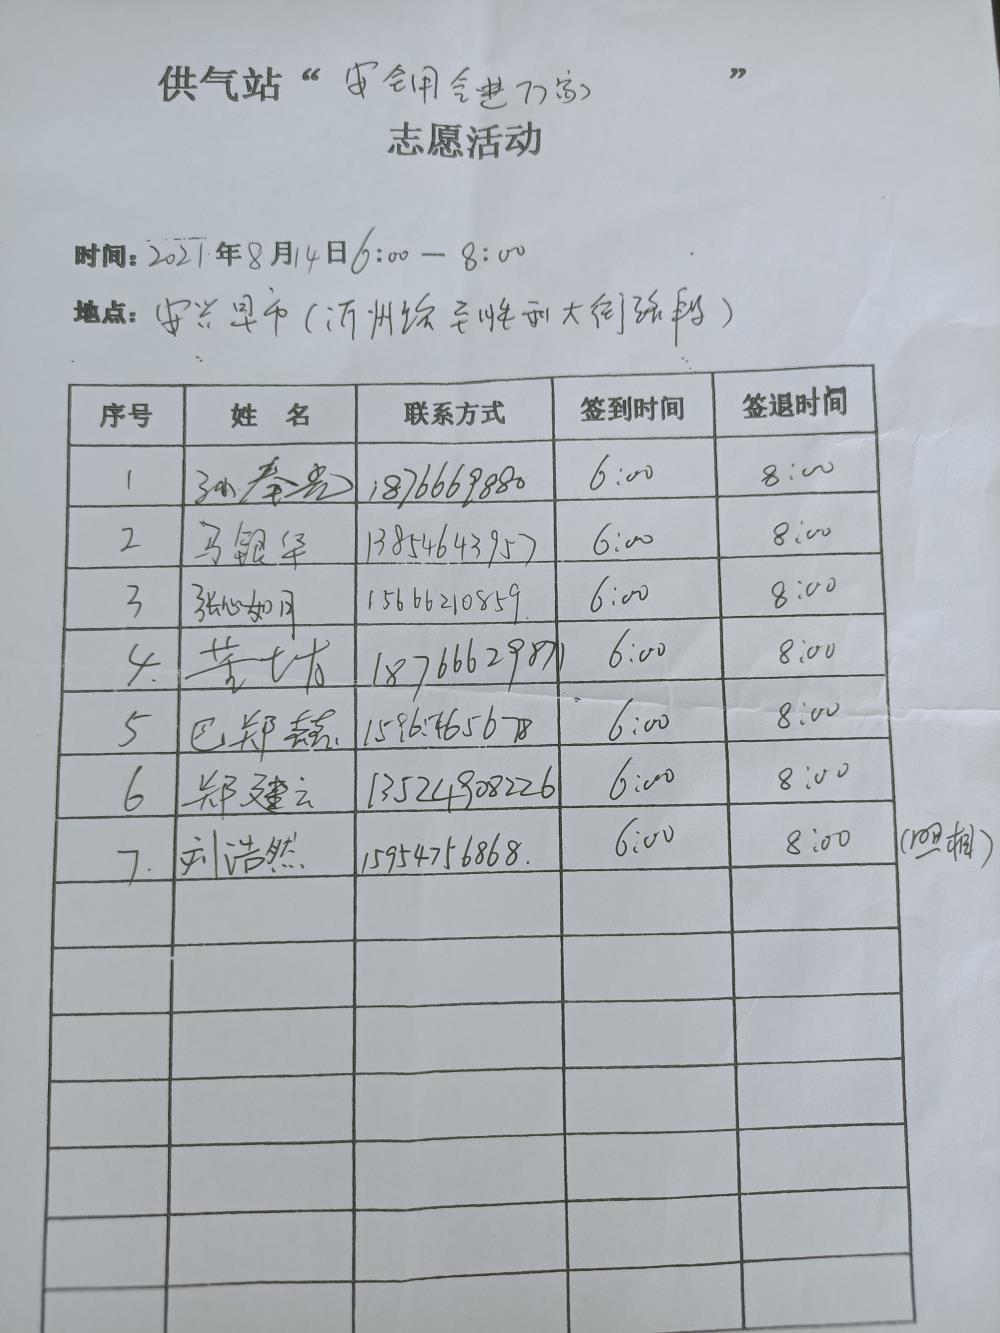 供气站“安全用气进万家”
志愿活动
时间：2021年8月14日6:00—8:00
地点：安兴早市（沂州路至胜利大街路段）
序号 姓名 联系方式 签到时间 签退时间
1 孙奉亮 18766669880 6:00 8:00
2 马银华 13854643957 6:00 8:00
3 张心如月 15666210859 6:00 8:00
4. 18766629871 6:00 8:00
5 巴郑喆 6:00 8:00
6 郑建云 13524908226 6:00 8:00
7. 刘浩然 15954756868. 6:00 8:00 （照相）